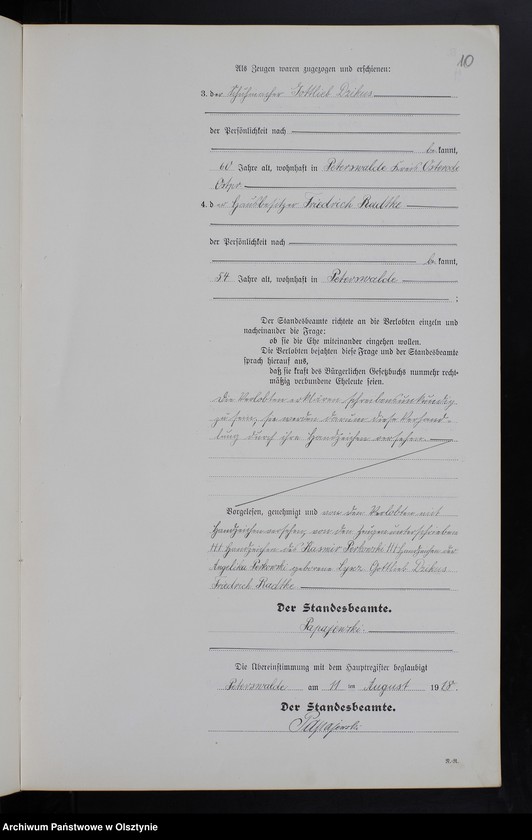 10
Als Zeugen waren zugezogen und erschienen:
3. der Schuhmacher Gottlieb Dzikus
der Persönlichkeit nach
be kannt,
60 Jahre alt, wohnhaft in Peterswalde Kreis Osterode
Ostpr.
4. der Hausbesitzer Friedrich Radtke
der Persönlichkeit nach
be kannt,
54 Jahre alt, wohnhaft in Peterswalde
;
Der Standesbeamte richtete an die Verlobten einzeln und
nacheinander die Frage:
ob sie die Ehe miteinander eingehen wollen.
Die Verlobten bejahten diese Frage und der Standesbeamte
sprach hierauf aus,
daß sie kraft des Bürgerlichen Gesetzbuchs nunmehr recht-
mäßig verbundene Eheleute seien.
Die Verlobten erklären schreibensunkundig
zu sein, sie werden darum diese Verhand-
lung durch ihre Handzeichen versehen.
Vorgelesen, genehmigt und von den Verlobten mit
Handzeichen versehen, von den Zeugen unterschrieben
+++ Handzeichen des Kasimir +++ Handzeichen der
Angelika geborene Gottlieb Dzikus
Friedrich Radtke
Der Standesbeamte.
Papajewski
Die Übereinstimmung mit dem Hauptregister beglaubigt
Peterswalde am 11 ten August 1918.
Der Standesbeamte.
Papajewski
R.-R.
Archiwum Państwowe w Olsztynie